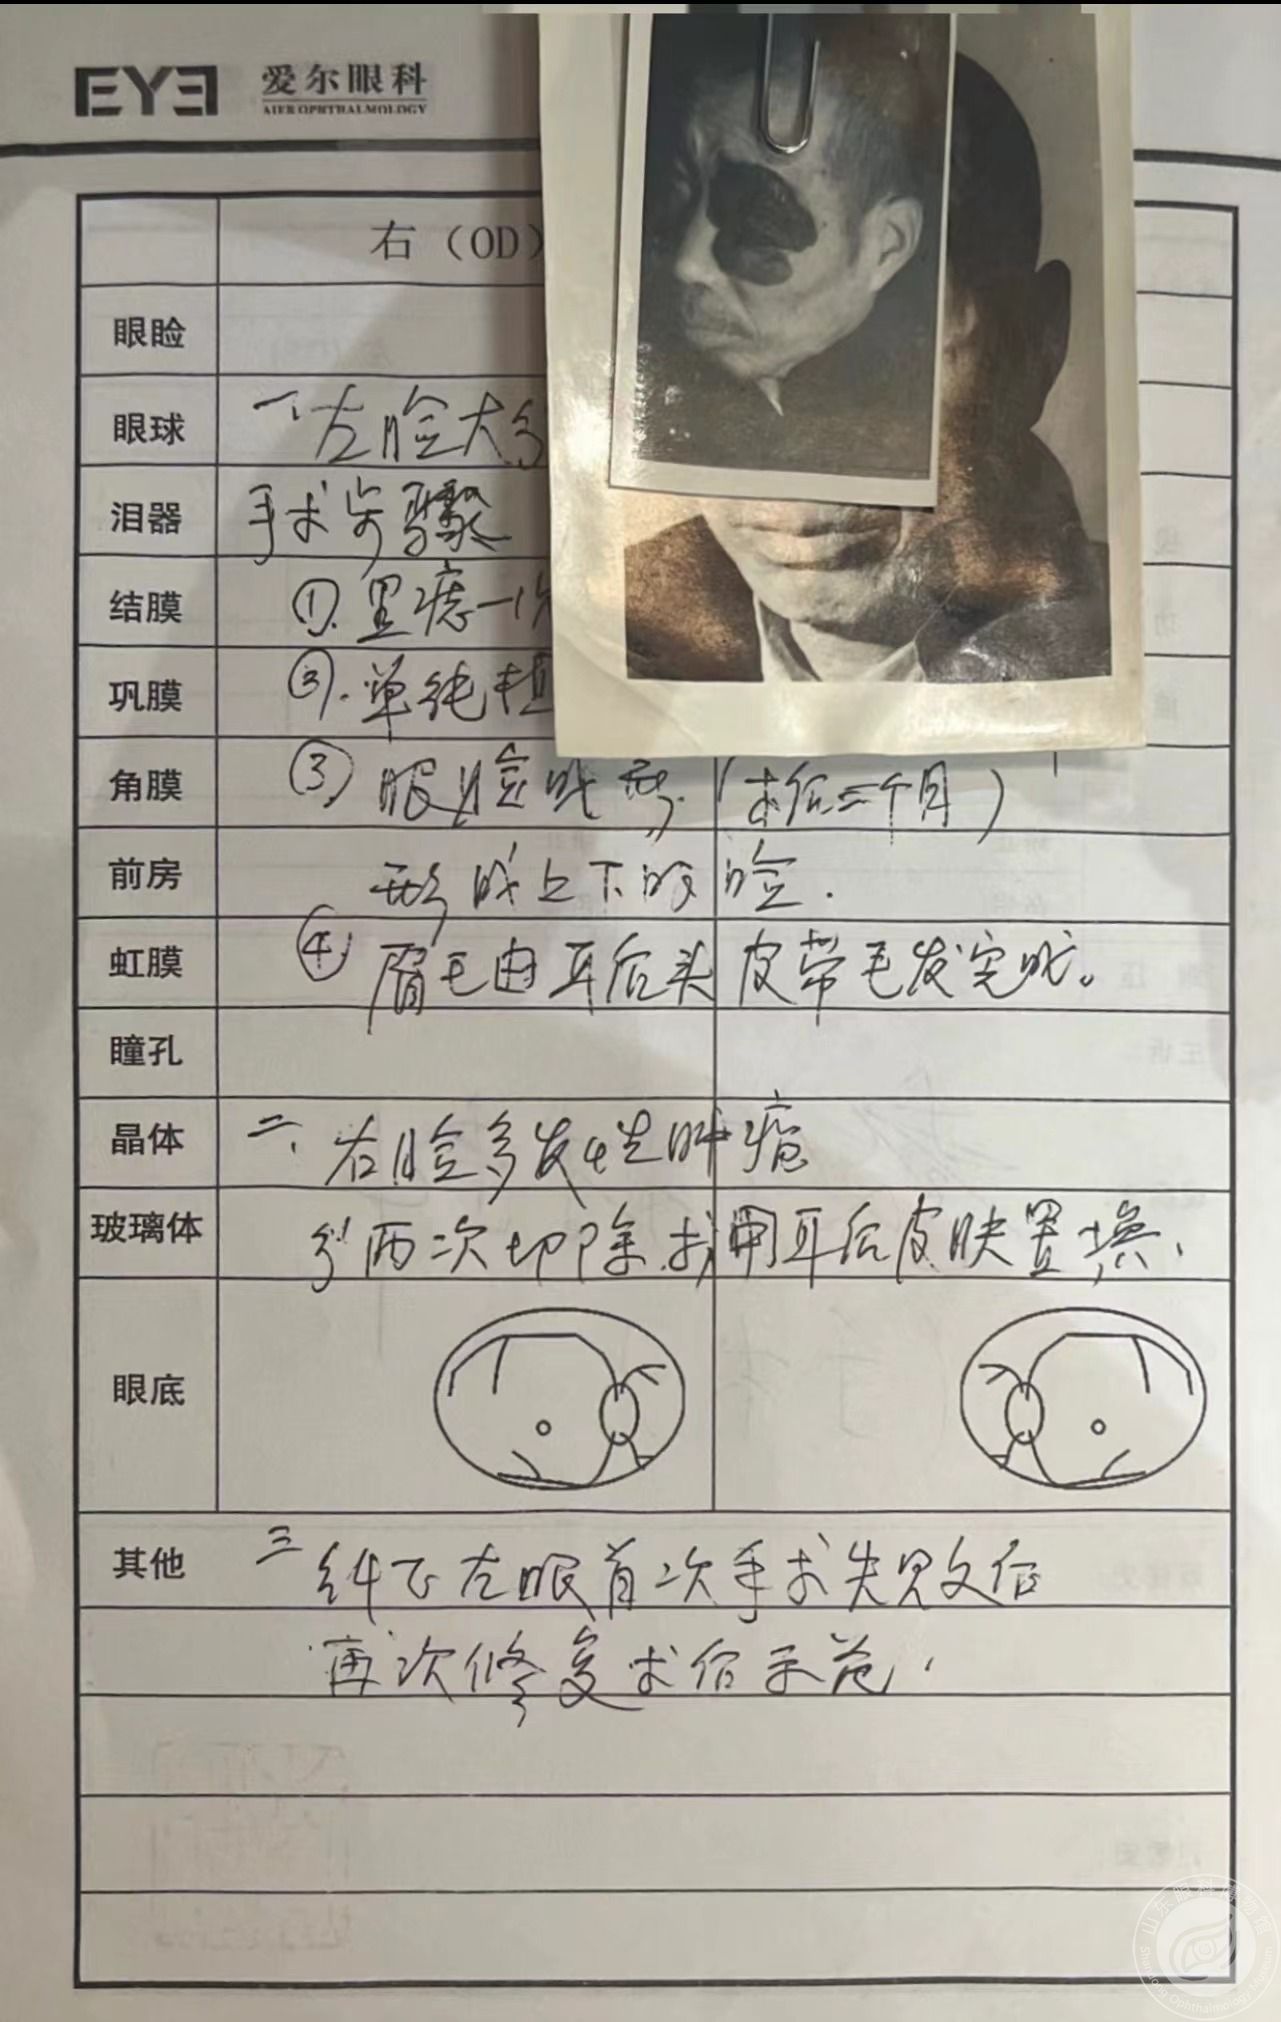 EYE 爱尔眼科
AIER OPHTHALMOLOGY
右（OD）
眼睑
眼球 一、左睑大
泪器 手术步骤
结膜 ①.黑痣一次
巩膜 ②.单纯植
角膜 ③眼睑成形.（术后三个月）
前房 形成上下的睑.
虹膜 ④眉毛由耳后头皮带毛发完成。
瞳孔
晶体 二、右睑多发性肿瘤
玻璃体 分两次切除.或用耳后皮肤置换、
眼底
其他 三 纠正左眼首次手术失败后
再次修复术后示范.
山东眼科博物馆
Shandong Ophthalmology Museum